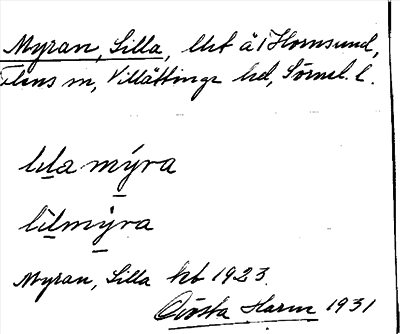 Myran, Lilla, lht å 1 Hornsund,
Flens sn, Villåttinge hd, Sörml. l.
lịla mýra
lilmýra
Myran, Lilla kb 1923.
Gösta Harm 1931